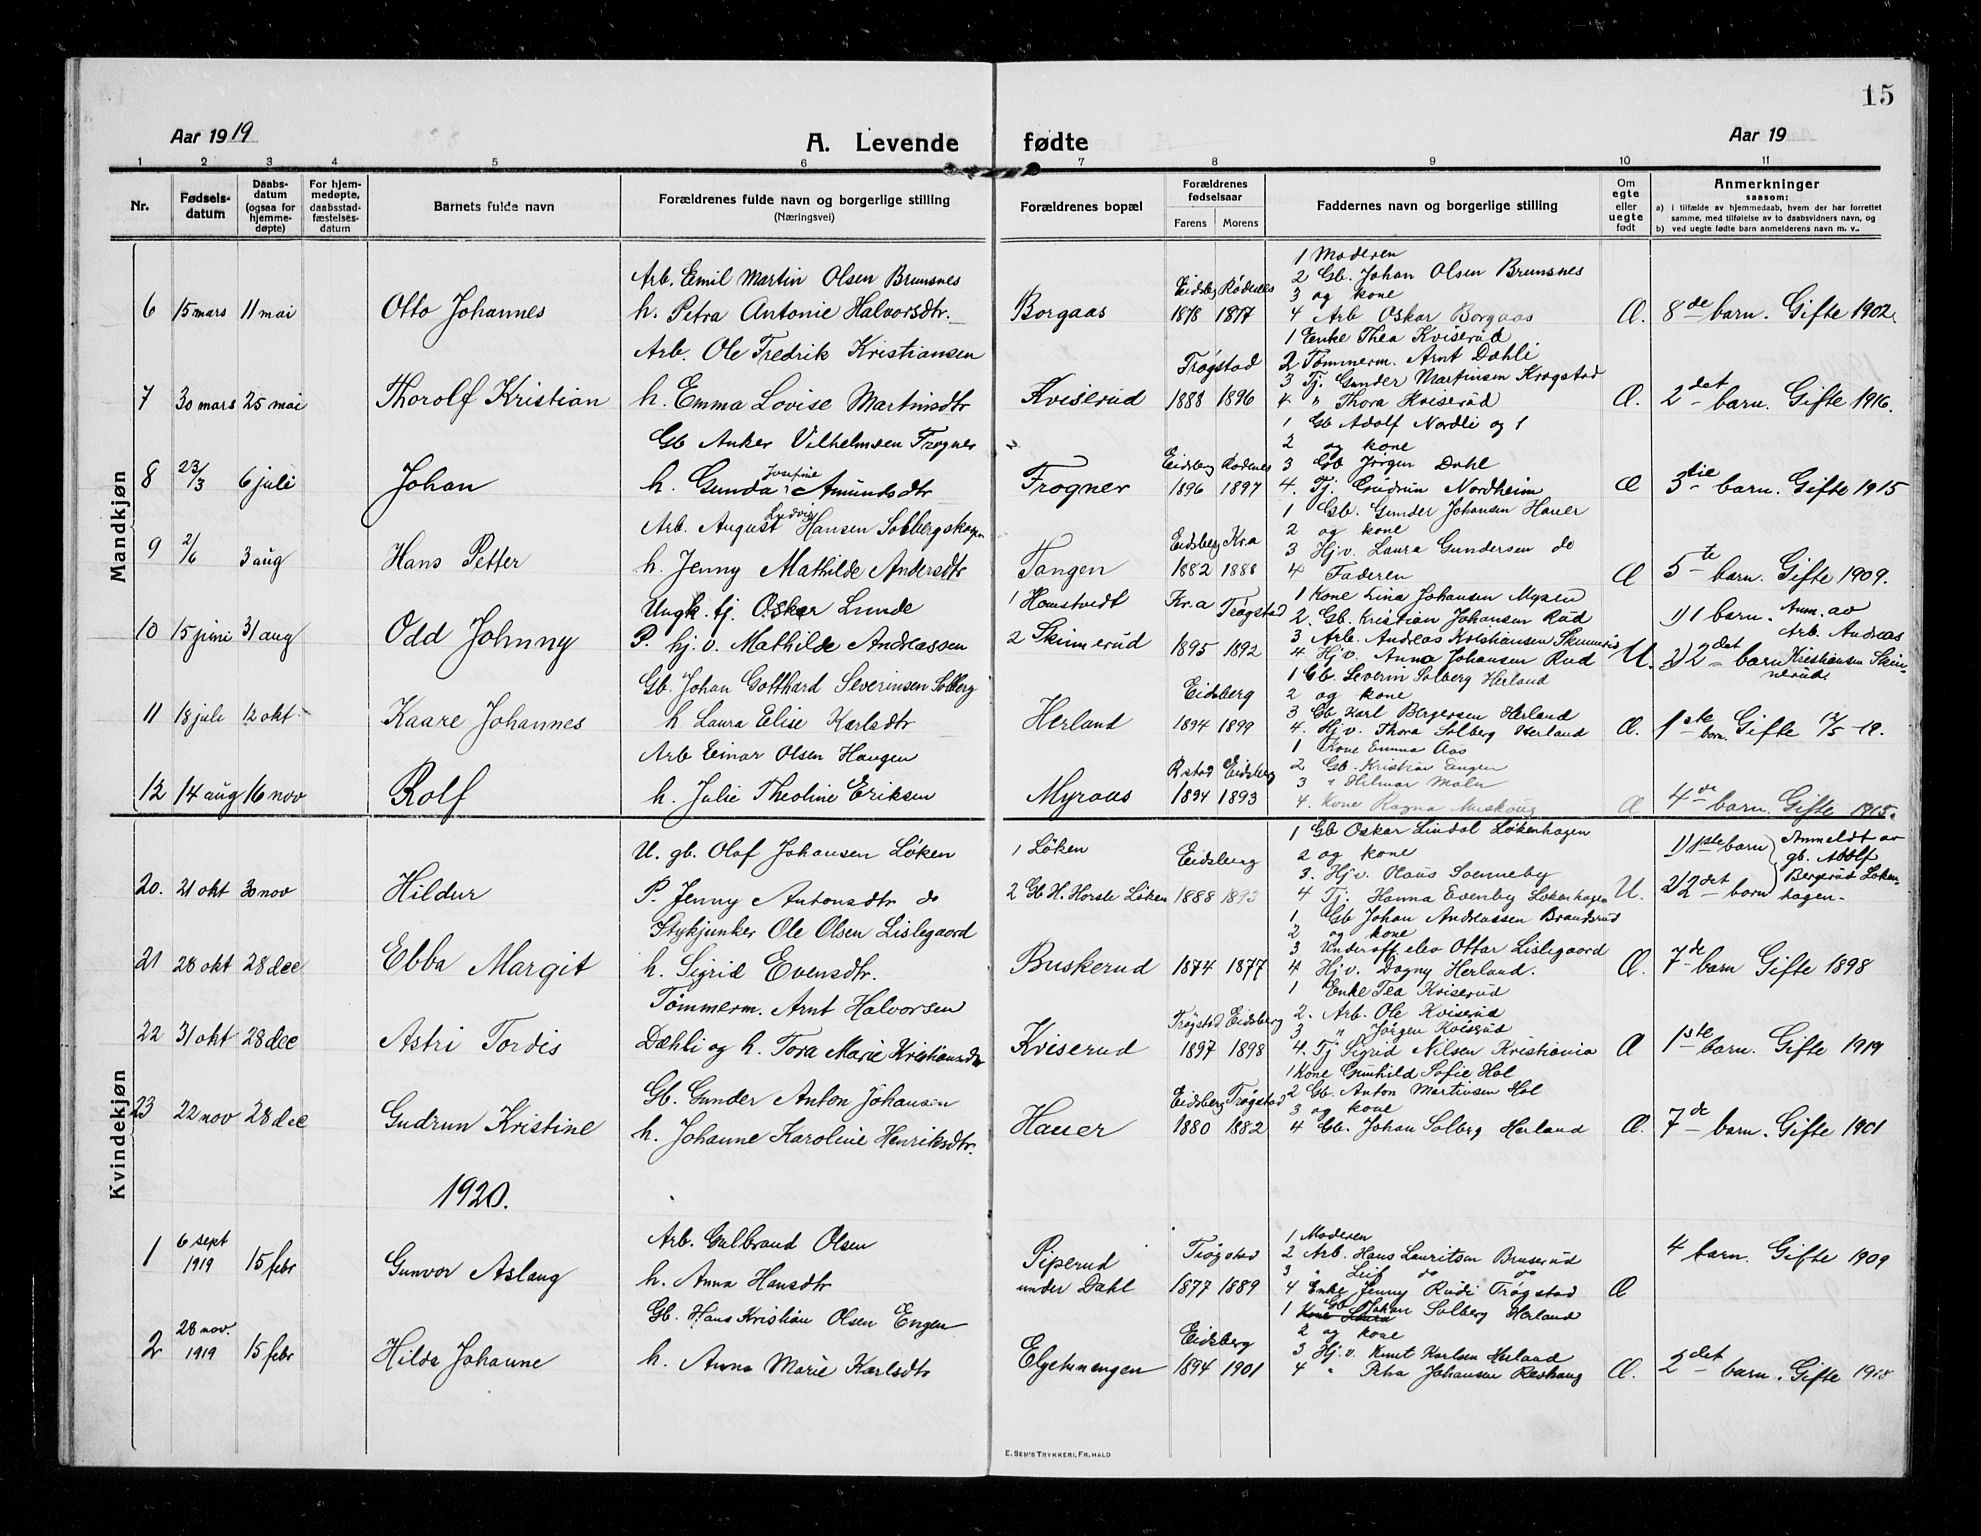 15
Aar 1919
A. Levende fødte
Aar 19
1 2 3 4 5 6 7 8 9 10 11
Nr.
Fødsels-
datum
Daabs-
datum
(ogsaa for
hjemme-
døpte)
For hjem-
medøpte,
daabsstad-
fæstelses-
datum
Barnets fulde navn
Forældrenes fulde navn og borgerlige stilling
(Næringsvei)
Forældrenes bopæl
Forældrenes
fødselsaar
Farens Morens
Faddernes navn og borgerlige stilling
Om
egte
eller
uegte
født
Anmerkninger
saasom:
a) i tilfælde av hjemmedaab, hvem der har forrettet
samme, med tilføielse av to daabsvidners navn, og
b) ved uegte fødte barn anmelderens navn m. v..
Mandkjøn
6 15 mars 11 mai
Otto Johannes
Arb. Emil Martin Olsen Brunsnes
h. Petra Antonie Halvorsdtr.
Borgaas
Eidsbg Rødenes
1878 1877
1 Moderen
2 Gb. Johan Olsen Brunsnes
3 og kone
4 Arb Oskar Borgaas
Æ. 8de barn. Gifte 1902.
7 30 mars 25 mai
Thorolf Kristian
Arb. Ole Fredrik Kristiansen
h. Emma Lovise Martinsdtr
Kviserud
Trøgstad
1888 1896
1 Enke Thea Kviserud
2 Tømmerm. Arnt Dæhli
3 Tj. Gunder Martinsen Krogstad
4 " Thora Kviserud
Æ. 2det barn. Gifte 1916.
8 23/3 6 juli
Johan
Gb Anker Vilhelmsen Frogner
h. Gunda Josefine Amundsdtr
Frogner
Eidsberg Rødenes
1896 1897
1 Gb Adolf Nordli og 1
2 og kone
3 Gb Jørgen Dahl
4. Tj. Gudrun Nordheim
Æ 3die barn. Gifte 1915
9 2/6 3 aug
Hans Petter
Arb. August Ludvig Hansen Solbergskogen
h. Jenny Mathilde Andersdtr
Tangen
Eidsberg Kr.a
1882 1888
1 Gb. Gunder Johansen Hauer
2 og kone
3 Hj.v. Laura Gundersen do
4 Faderen
Æ 5te barn. Gifte 1909.
10 15 juni 31 aug
Odd Johnny
Ungk. tj. Oskar Lunde
P. hj. v. Mathilde Andreassen
1 Homstvedt
2 Skinnerud
Kr.a Trøgstad
1895 1892
1 Kone Lina Johansen Mysen
2. Gb. Kristian Johansen Rud
3 Arb. Andreas Kristiansen Skinnerud
4. Hj.v. Anna Johansen Rud
U. 1) 1 barn. Anm. av
Arb. Andreas
2) 2det barn Kristiansen Skin-
nerud.
11 18 juli 12 okt.
Kaare Johannes
Gb. Johan Gotthard Severinsen Solberg
h Laura Elise Karlsdtr
Herland
Eidsberg
1894 1899
1 Gb. Severin Solberg Herland
2 og kone
3 Gb Karl Bergersen Herland
4. Hj.v. Thora Solberg Herland
Æ. 1ste barn. Gifte 17/5-19.
12 14 aug 16 nov
Rolf
Arb Einar Olsen Haugen
h. Julie Theoline Eriksen
Myraas
R.stad Eidsberg
1894 1893
1 Kone Emma Aas
2 Gb. Kristian Engen
3 " Hilmar Moln
4. Kone Ragna
Æ 4de barn. Gifte 1915.
Kvindekjøn
20. 21 okt 30 nov
Hildur
U. gb. Olaf Johansen Løken
P. Jenny Antonsdtr do
1 Løken
2 Gb H. Horsle Løken
Eidsberg
1888 1893
1 Gb Oskar Lindal Løkenhagen
2 og kone
3. Hj.v. Olaus Svenneby
4 Tj. Hanna Evenby Løkenhagen
U. 1) 1ste barn Anmeldt av
gb. Adolf
2) 2det barn Bergerud Løken-
hagen.
21 28 okt 28 dec
Ebba Margit
Stykjunker Ole Olsen Lislegaard
h. Sigrid Evensdtr.
Buskerud
1874 1877
1 Gb Johan Andreassen Brandsrud
2 og kone
3 Underoff. elev Ottar Lislegaard
4 Hj.v. Dagny Herland.
Æ. 7de barn Gifte 1898
22 31 okt 28 dec
Astri Tordis
Tømmerm. Arnt Halvorsen
Dæhli og h. Tora Marie Kristiansdtr
Kviserud
Trøgstad Eidsberg
1897 1898
1 Enke Tea Kviserud
2. Arb. Ole Kviserud
3 " Jørgen Kviserud
4. Tj Sigrid Nilsen Kristiania
Æ 1ste barn. Gifte 1919
23 22 nov 28 dec
Gudrun Kristine
Gb. Gunder Anton Johansen
h. Johanne Karoline Henriksdtr.
Hauer
Eidsberg Trøgstad
1880 1882
1 Kone Gunhild Sofie Hol
2 Gb. Anton Martinsen Hol
3 og kone
4 Gb. Johan Solberg Herland
Æ. 7de barn. Gifte 1901
1920.
1 6 sept 1919 15 febr
Gunvor Aslaug
Arb. Gulbrand Olsen
h. Anna Hansdtr
Piperud
under Dahl
Trøgstad
1877 1889
1 Moderen
2 Arb. Hans Lauritsen Bruserud
3 " Leif do do
4 Enke Jenny Rudi Trøgstad
Æ 4 barn. Gifte 1909
2 28 nov. 1919 15 febr
Hilda Johanne
Gb. Hans Kristian Olsen Engen
h. Anna Marie Karlsdtr
Elgetunengen
Eidsberg
1894 1901
1 Gb Johan Solberg Herland
2 og kone
3 Hj.v. Knut Karlsen Herland
4 " Petra Johansen Revhaug
Æ. 2det barn. Gifte 1918
E. SEM'S TRYKKERI, FR.HALD